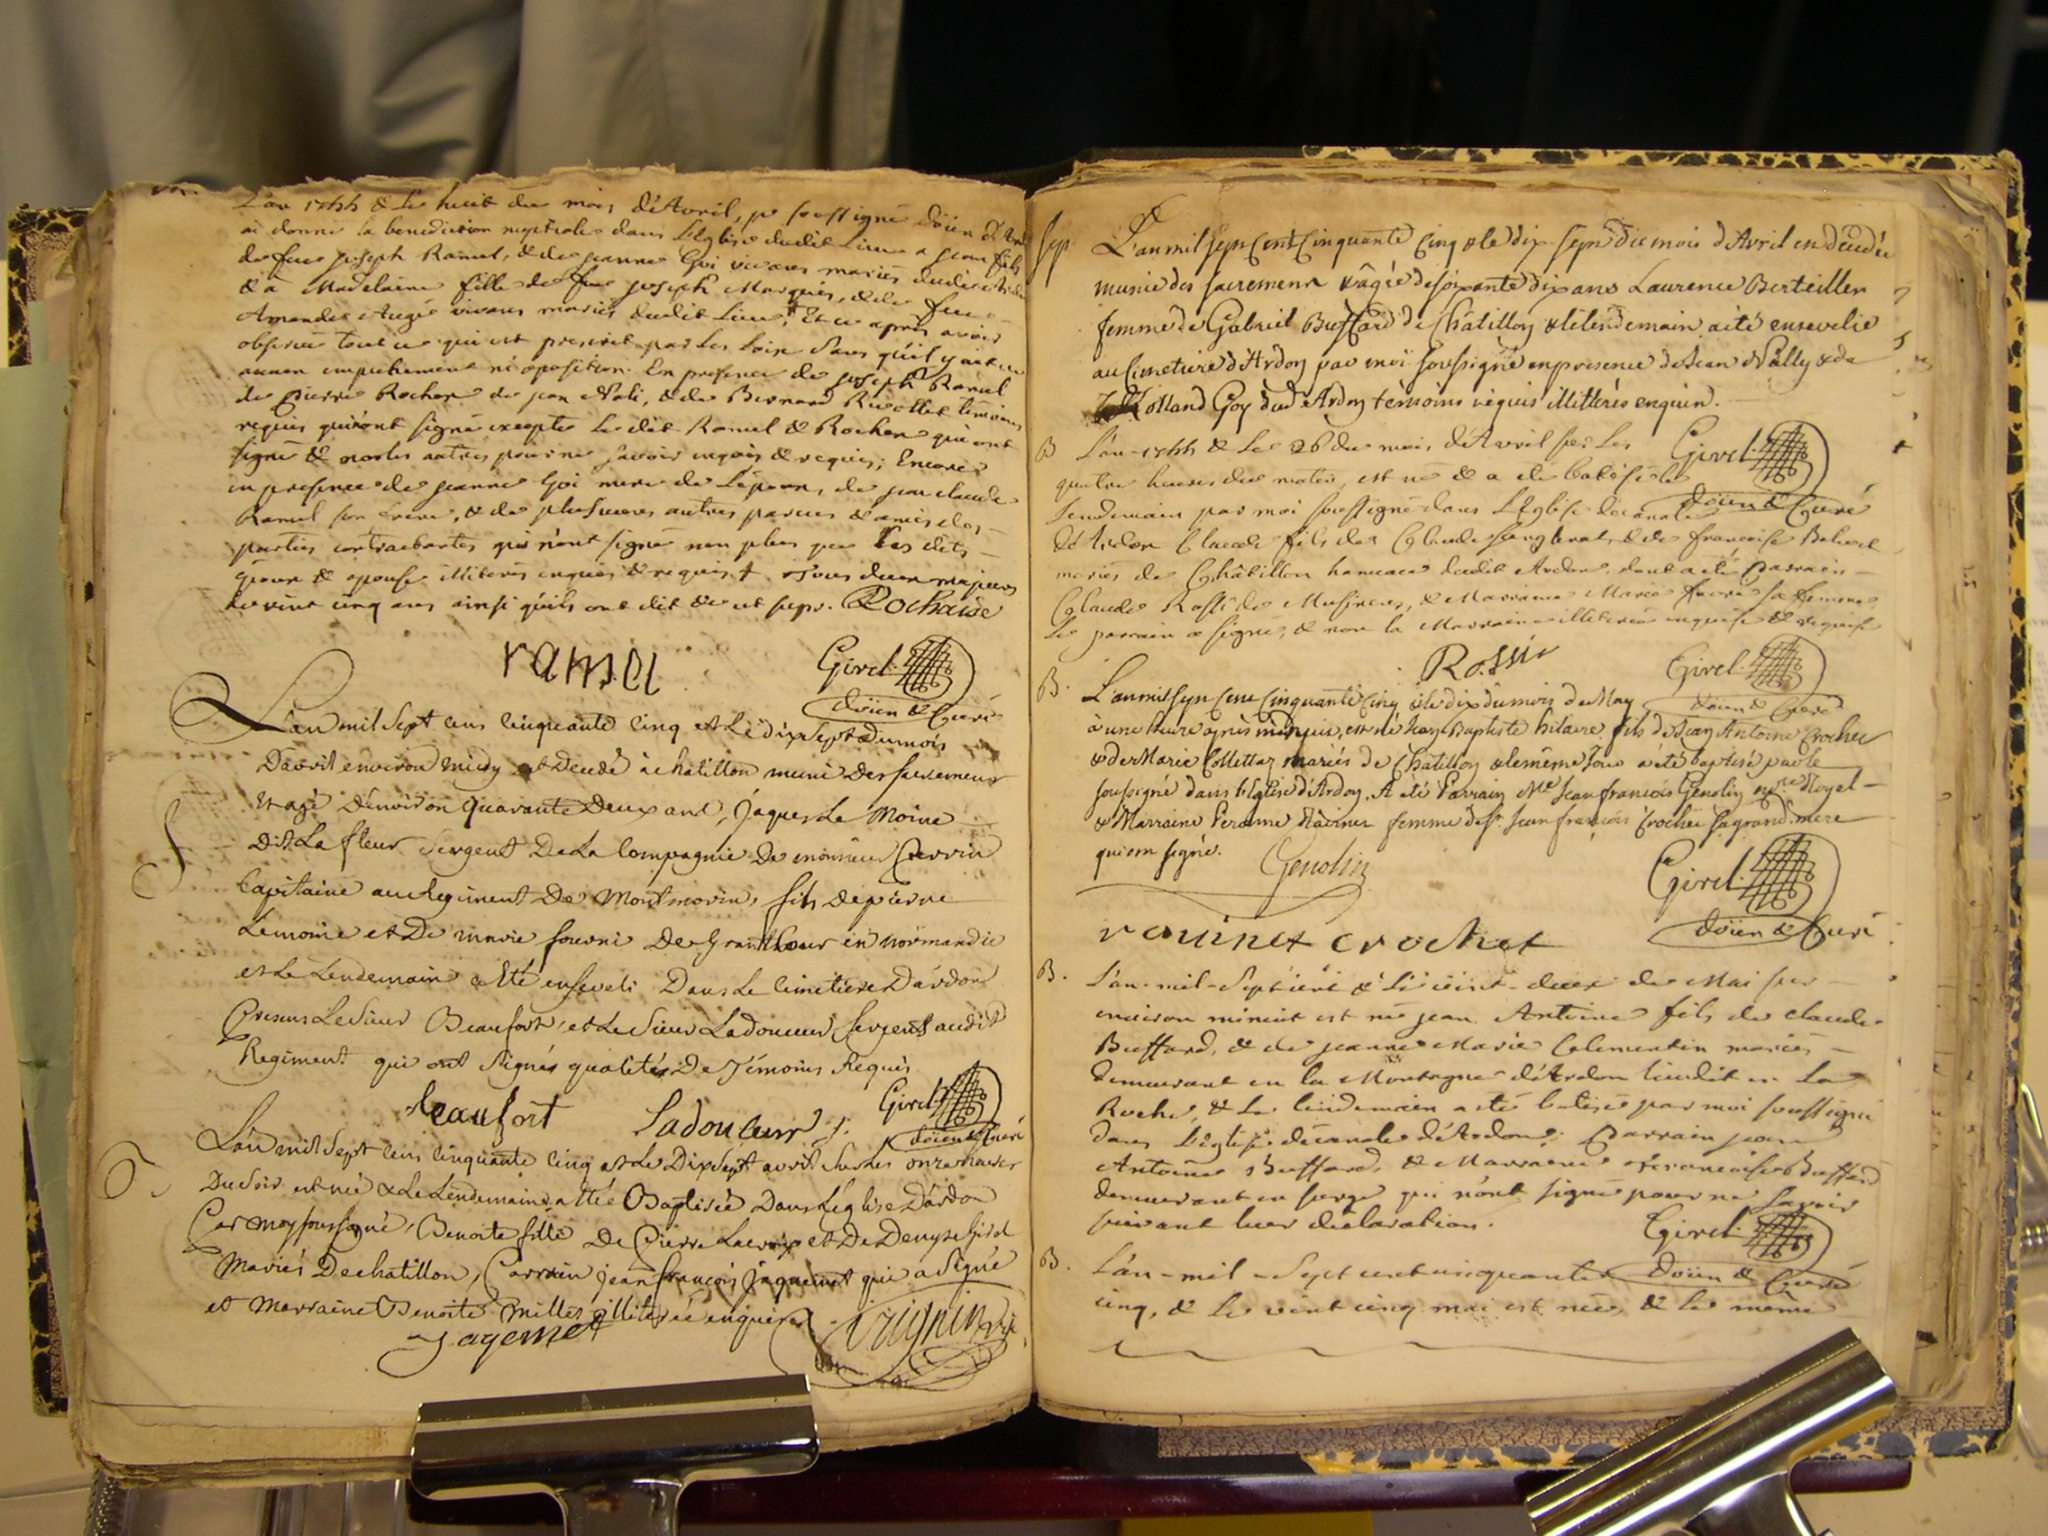 L'an 1755 & le huit du mois d'Avril, je soussigné Doïen d'Ard
ai donné la benediction nuptiale dans L'Eglise dudit Lieu a jean fils
de feu joseph Ramel, & de jeanne Goi vivans mariés dudit Ardon
& à Madelaine fille de feu joseph Marquis, & de feue
Amandre Augé vivans mariés dudit Lieu, Et ce après avoir
observé tout ce qui est prescrit par les Loix sans qu'il y ait eu
aucun empechement ni oposition. En presence de joseph Ramel
de Pierre Rochaz de jean Noli, & de Bernard Rivollet temoins
requis qui ont signé excepté
signé & non les autres pour ne savoir enquis & requis; Encore
en presence de jeanne Goi mere de L'epoux, de jean claude
Ramel son frere, & de plusieurs autres parens & amis des
parties contractantes qui n'ont signé non plus que les dits
époux & épouse illiterés enquis & requis + Tous deux majeurs
de vint cinq ans ainsi qu'ils ont dit
ramel
Girel
Doïen & Curé
L'an mil sept cens cinquante cinq et Le dix sept du mois
D'avril environ midy est decedé à chatillon muni Des sacremens
Et agé D'environ quarante Deux ans, jaques Le Moine
Dit La fleur Sergent De La Compagnie De monsieur Perrin
Capitaine au Regiment De Montmorin, fils De pierre
Lemoine et De marie fourni De Grantcour en normandie
et Le Lendemain a Eté enseveli Dans Le Cimetiere D'ardon
Presens Le Sieur Beaufort, et Le Sieur Ladouceur sergents audit
Regiment qui ont signés qualités De Témoins Requis
Beaufort Ladouceur
Girel
Doïen & Curé
L'an mil sept cens cinquante cinq et Le Dix sept avril sur Les onze heures
Du soir est née & Le Lendemain a Eté Baptisée Dans L'église D'ardon
Par moy soussigné, Benoite fille De Pierre Lacroix et De Denyse Girel
Mariés De chatillon, Parrain jean françois jaquemet qui a Signé
et Marraine Benoite Millet illiterée enquise
Jagemet
Vuignin
Sep.
L'an mil sept cent Cinquante Cinq & le dix sept du mois d'Avril est decedée
munie des sacremens & agée de soixante dix ans Laurence Berteiller
femme de Gabriel Buffard de Chatillon & le lendemain a eté ensevelie
au Cimetiere d'Ardon par moi soussigné en presence de Jean Nolly & de
Rolland Goy dud. Ardon temoins requis illitterés enquis.
Girel
Doïen & Curé
B
L'an 1755 & Le 26 du mois d'Avril sur les
quatre heures du matin, est né & a eté batisé le
lendemain par moi soussigné dans L'Eglise decanale
d'Ardon Claude fils de Claude & de françoise
mariés de Châtillon hameau dudit Ardon, dont a eté Parrain
Claude Rossi de Musinens, & Marraine Marie sa femme
le parrain a signé, & non la Marraine illiterée enquise & requise
Rossi
Girel
Doïen & Curé
B.
L'an mil sept cent Cinquante Cinq & le dix du mois de May
à une heure après minuit, est né Jean Baptiste hilaire fils de Jean Antoine Crochet
& de Marie Collettaz mariés de Chatillon & le même Jour a été baptisé par le
soussigné dans l'Eglise d'Ardon. A eté Parrain Me Jean francois Genolin Nre Royal
& Marraine Peronne Ravinet femme de Sr Jean françois Crochet sa grand mere
qui ont signé.
Genolin
Girel
Doïen & Curé
ravinet crochet
B.
L'an mil Sept cent & le vint deux de Mai sur
environ minuit est né jean Antoine fils de claude
Buffard, & de jeanne Marie Clementin mariés
demeurant en la Montagne d'Ardon lieudit en La
Roche, & Le lendemain a eté batisé par moi soussigné
dans L'église decanale d'Ardon. Parrain jean
Antoine Buffard, & Marraine francoise Buffard
demeurant en serge, qui n'ont signé pour ne savoir
suivant leur declaration.
Girel
Doïen & Curé
B.
L'an mil Sept cent cinquante
cinq, & le vint cinq mai est née, & le même